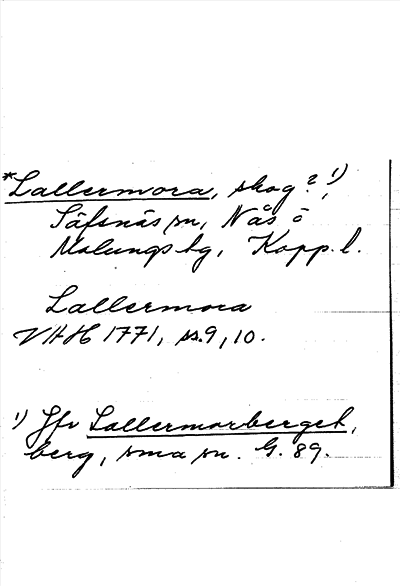 *Lallermora, skog? 1)
Säfsnäs sn, Nås o
Malungs hg, Kopp. l.
Lallermora
VHH 1771, ss. 9, 10.
1) Jfr Lallermorberget,
berg, sma sn. G. 89.